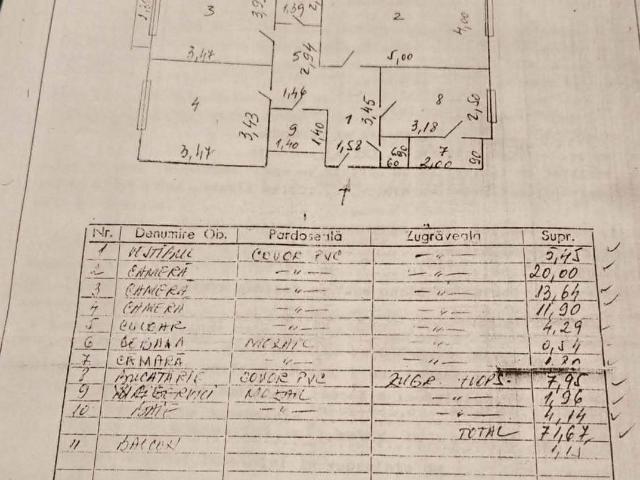 3
1,39
2
4,00
3,47
5
2,94
5,00
4
1,46
1
3,45
8
2,50
3,43
9
1,40
3,18
1,40
1,58
6
60
90
7
2,00
90
3,47
Nr. Denumire Ob. Pardoseală Zugrăveala Supr.
1 VESTIBUL COVOR PVC —"— 5,45
2 CAMERĂ —"— —"— 20,00
3 CAMERĂ —"— —"— 13,64
4 CAMERĂ —"— —"— 11,90
5 CULOAR —"— —"— 4,29
6 DEBARA MOZAIC —"— 0,54
7 CĂMARĂ —"— —"— 1,80
8 BUCATARIE COVOR PVC ZUGR. 7,95
9 MOZAIC —"— 1,96
10 BAIE —"— —"— 4,14
TOTAL 71,67
11 BALCON